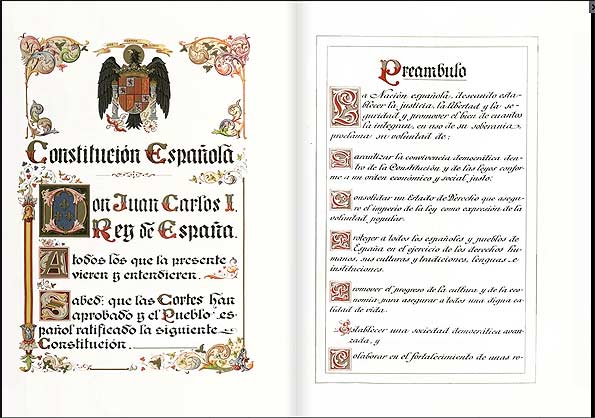 Constitución Española
Don Juan Carlos I.
Rey de España.
A todos los que la presente
vieren y entendieren.
Sabed: que las Cortes han
aprobado y el Pueblo es-
pañol ratificado la siguiente
Constitución.
Preambulo
La Nación española, deseando esta-
blecer la justicia, la libertad y la se-
guridad y promover el bien de cuantos
la integran, en uso de su soberanía
proclama su voluntad de:
Garantizar la convivencia democrática den-
tro de la Constitución y de las leyes confor-
me a un orden económico y social justo.
Consolidar un Estado de Derecho que asegu-
re el imperio de la ley como expresión de la
voluntad popular.
Proteger a todos los españoles y pueblos de
España en el ejercicio de los derechos hu-
manos, sus culturas y tradiciones, lenguas e
instituciones.
Promover el progreso de la cultura y de la eco-
nomía para asegurar a todos una digna ca-
lidad de vida.
Establecer una sociedad democrática avan-
zada, y
Colaborar en el fortalecimiento de unas re-